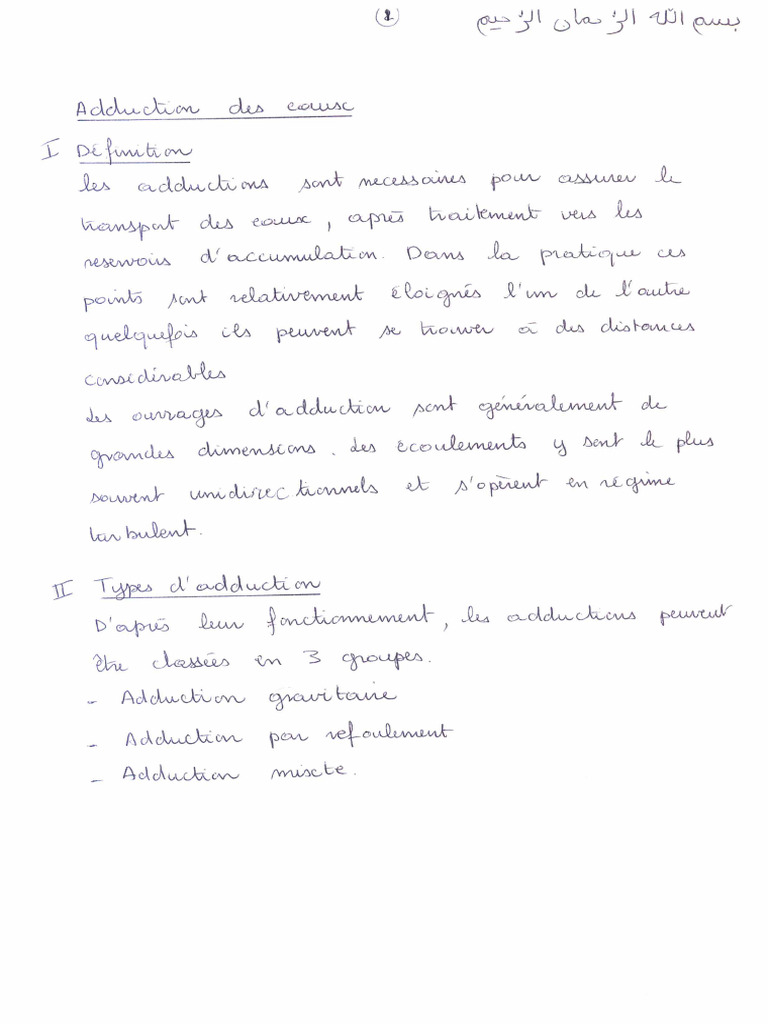 1
بسم الله الرحمان الرحيم
Adduction des eaux
I Définition
Les adductions sont necessaires pour assurer le
transport des eaux, après traitement vers les
reservoirs d'accumulation. Dans la pratique ces
points sont relativement éloignés l'un de l'autre
quelquefois ils peuvent se trouver à des distances
considérables
Les ouvrages d'adduction sont généralement de
grandes dimensions. Les écoulements y sont le plus
souvent unidirectionnels et s'opèrent en régime
turbulent.
II Types d'adduction
D'après leur fonctionnement, les adductions peuvent
être classées en 3 groupes.
- Adduction gravitaire
- Adduction par refoulement
- Adduction mixte.